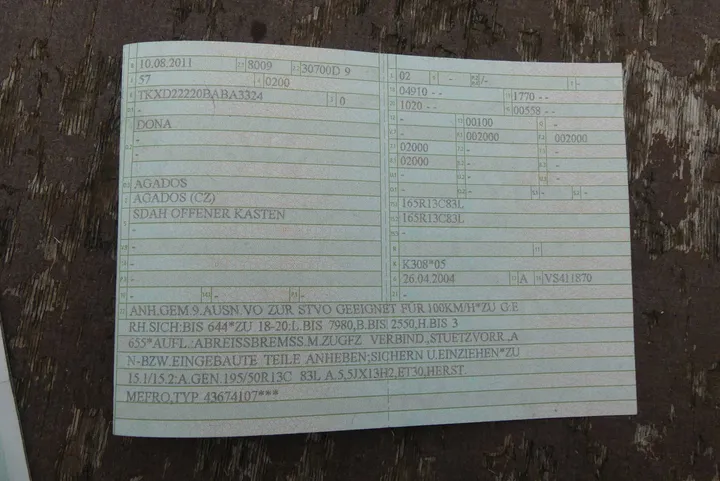 10.08.2011 8009 30700D 9
57 0200
TKXD22220BABA3324 0
-
DONA
-
-
AGADOS
AGADOS (CZ)
SDAH OFFENER KASTEN
-
-
-
-
- - -
02 - -/- -
04910 - - 1770 - -
1020 - - 00558 - -
- 00100 -
- 002000 002000
02000 - -
02000 - -
- - -
- - - -
165R13C83L
165R13C83L
-
-
K308*05
26.04.2004 A VS411870
-
ANH.GEM.9.AUSN.VO ZUR STVO GEEIGNET FÜR 100KM/H*ZU G:E
RH.SICH:BIS 644*ZU 18-20:L.BIS 7980,B.BIS 2550,H.BIS 3
655*AUFL.:ABREISSBREMSS.M.ZUGFZ VERBIND.,STUETZVORR.,A
N-BZW.EINGEBAUTE TEILE ANHEBEN;SICHERN U.EINZIEHEN*ZU
15.1/15.2:A.GEN.195/50R13C 83L A.5,5JX13H2,ET30,HERST.
MEFRO,TYP 43674107***